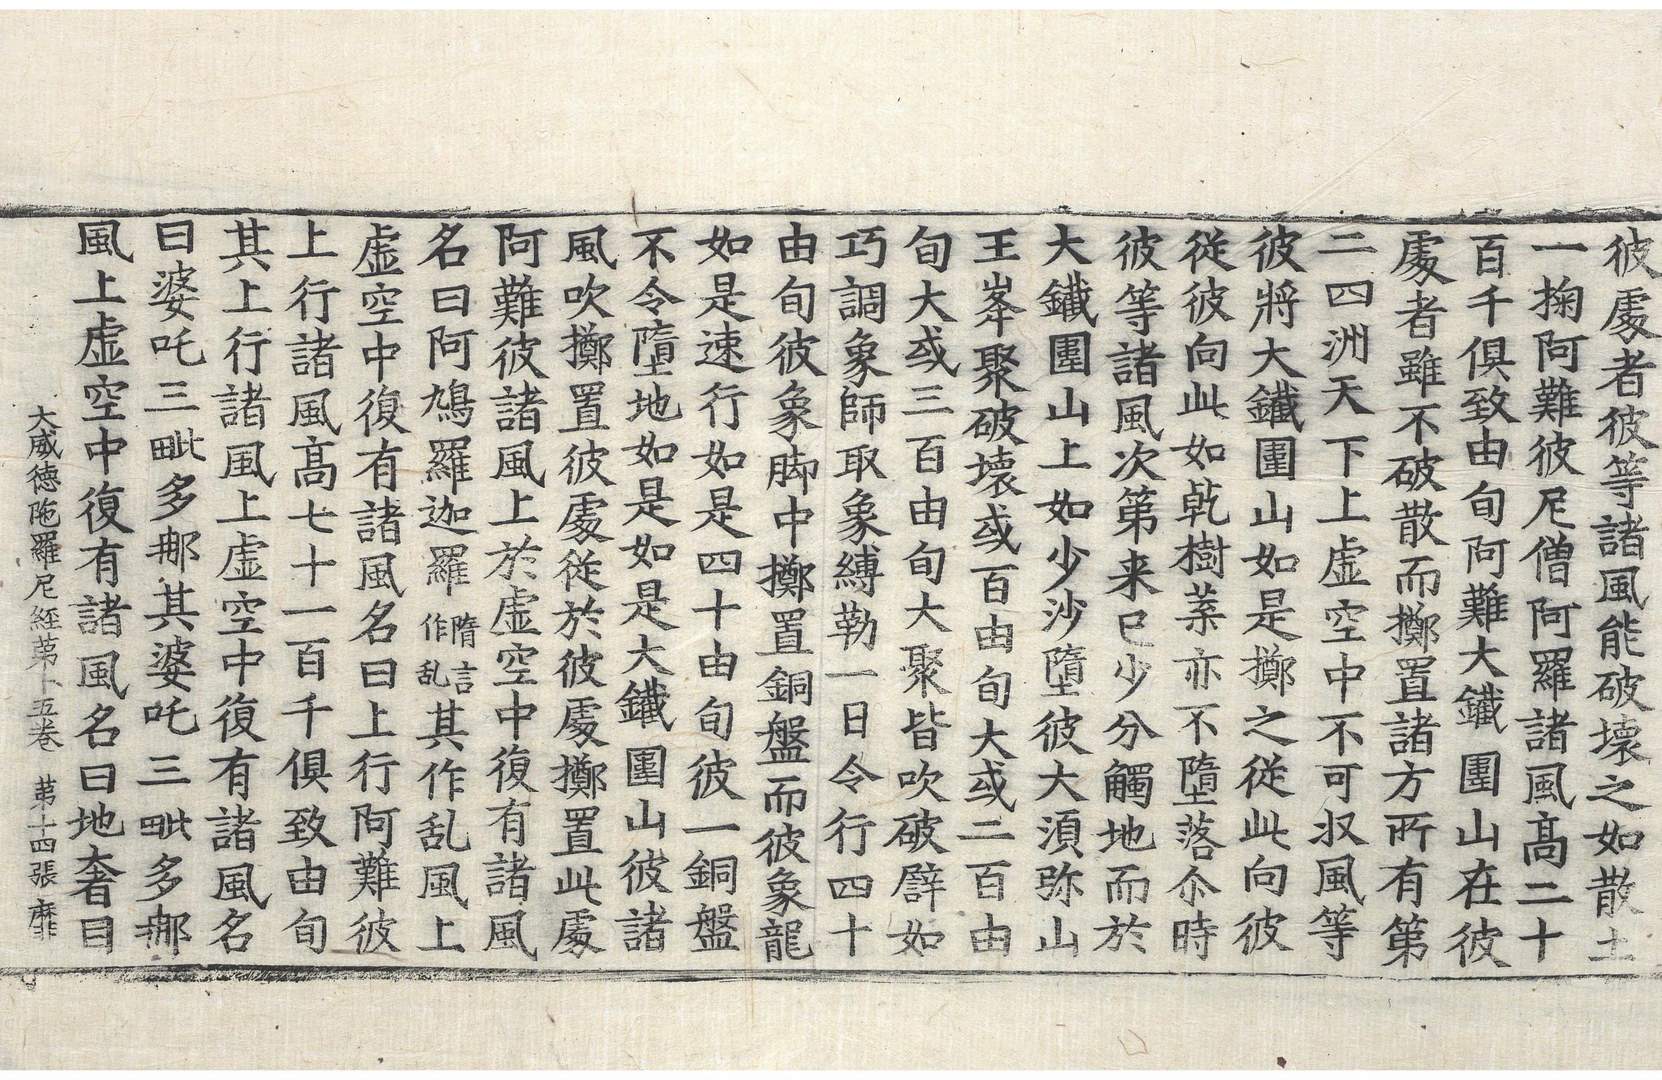 彼䖏者彼等諸風能破壞之如散土
一掬阿難彼尼僧阿羅諸風髙二十
百千俱致由旬阿難大鐵圍山在彼
䖏者雖不破散而擲置諸方所有第
二四洲天下上虛空中不可㕝風等
彼將大鐵圍山如是擲之從此向彼
從彼向此如乾樹葉亦不墮落尒時
彼等諸風次第来已少分觸地而於
大鐵圍山上如少沙墮彼大湏弥山
王峯聚破壞或百由旬大或二百由
旬大或三百由旬大聚皆吹破碎如
巧調象師取象縛勒一日令行四十
由旬彼象脚中擲置銅盤而彼象龍
如是速行如是四十由旬彼一銅盤
不令墮地如是如是大鐵圍山彼諸
風吹擲置彼䖏從於彼䖏擲置此䖏
阿難彼諸風上於虛空中復有諸風
名曰阿鳩羅迦羅隋言作乱其作乱風上
虛空中復有諸風名曰上行阿難彼
上行諸風髙七十一百千俱致由旬
其上行諸風上虛空中復有諸風名
曰婆吒三毗多那其婆吒三毗多那
風上虛空中復有諸風名曰地奢目
大威德陁羅尼經苐十五卷 苐十四張 靡